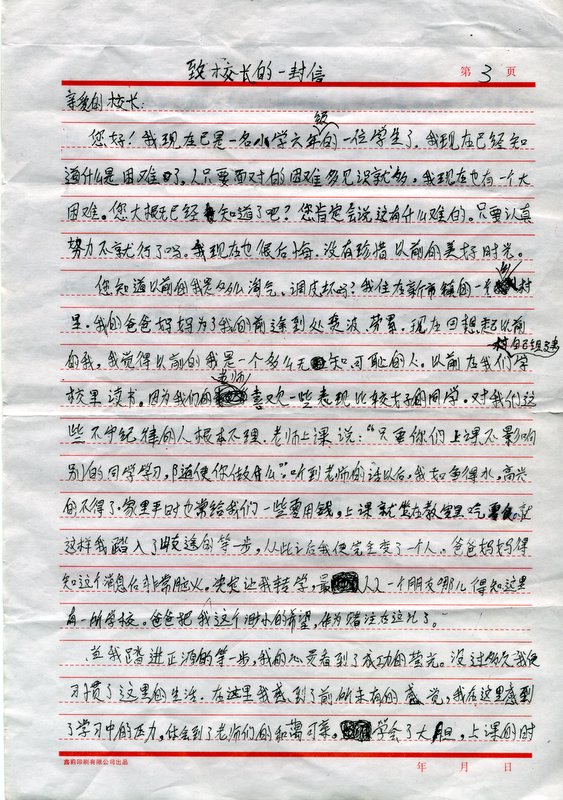 致校长的一封信
第 3 页
亲爱的校长：
您好！我现在已是一名小学六年级的一位学生了，我现在已经知
道什么是困难了，人只要面对的困难多见识就多，我现在也有一个大
困难。您大概已经知道了吧？您肯定会说这有什么难的。只要认真
努力不就行了吗。我现在也很后悔，没有珍惜以前的美好时光。
您知道以前的我是多么淘气、调皮坏吗？我住在新市镇的一个小村
里，我的爸爸妈妈为了我的前途到处奔波、劳累，现在回想起以前
的我，我觉得以前的我是一个多么无知、可耻的人。以前在我们村自己组建学
校里读书。因为我们的老师喜欢一些表现比较好的同学。对我们这
些不守纪律的人根本不理，老师上课说：“只要你们上课不影响
别的同学学习，随便你做什么”。听到老师的话以后，我如鱼得水，高兴
的不得了。家里平时也常给我们一些零用钱，上课就坐在教室里吃，就
这样我踏入了歧途的第一步，从此之后我便完全变了一个人。爸爸妈妈得
知这个消息后非常恼火。决定让我转学，最 从一个朋友哪儿得知这里
有一所学校。爸爸把我这个渺小的希望，作为赌注在这儿了。”
当我踏进正源的第一步，我的心灵看到了成功的莹光。没过多久我便
习惯了这里的生活。在这里我感到了前所未有的感觉，我在这里感到
了学习中的压力，体会到了老师们的和蔼可亲。学会了大胆，上课的时
鑫莉印刷有限公司出品
年 月 日